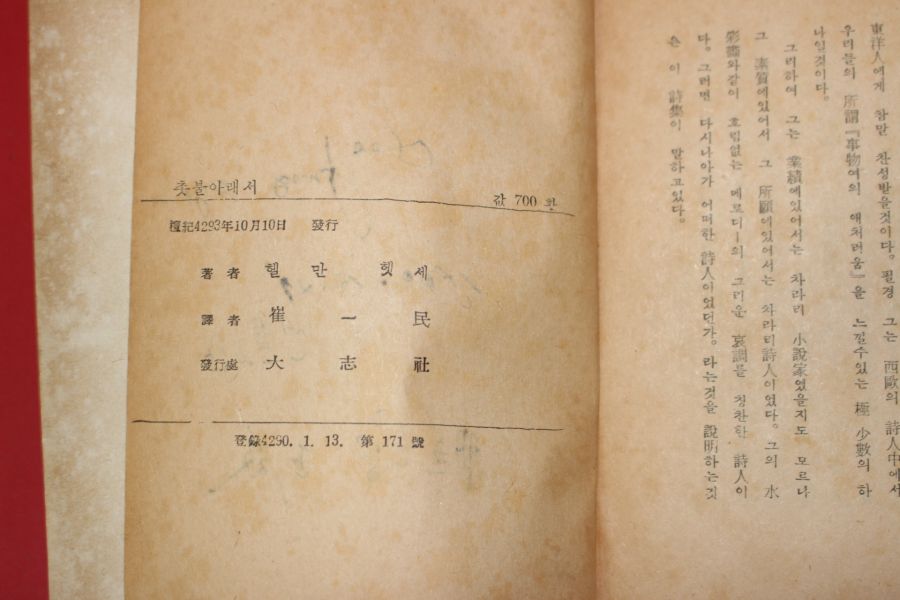 촛불아래서
값 700 환
檀紀4293年10月10日 發行
著者 헬만 헷세
譯者 崔一民
發行處 大志社
登錄4290. 1. 13. 第 171 號
東洋人에게 참말 찬성받을것이다. 필경 그는 西歐의 詩人中에서
우리들의 所謂『事物여의 애처러움』을 느낄수있는 極 少數의 하
나일것이다.
그리하여 그는 業績에있어서는 차라리 小說家였을지도 모르나
그 素質에있어서 그 所願에있어서는 차라리詩人이었다. 그의 水
彩畵와같이 흐림없는 메로디—의 그리운 哀調를 칭찬한 詩人이
다. 그러면 다시나아가 어떠한 詩人이었던가. 라는것을 說明하는것
은 이 詩集이 말하고있다.